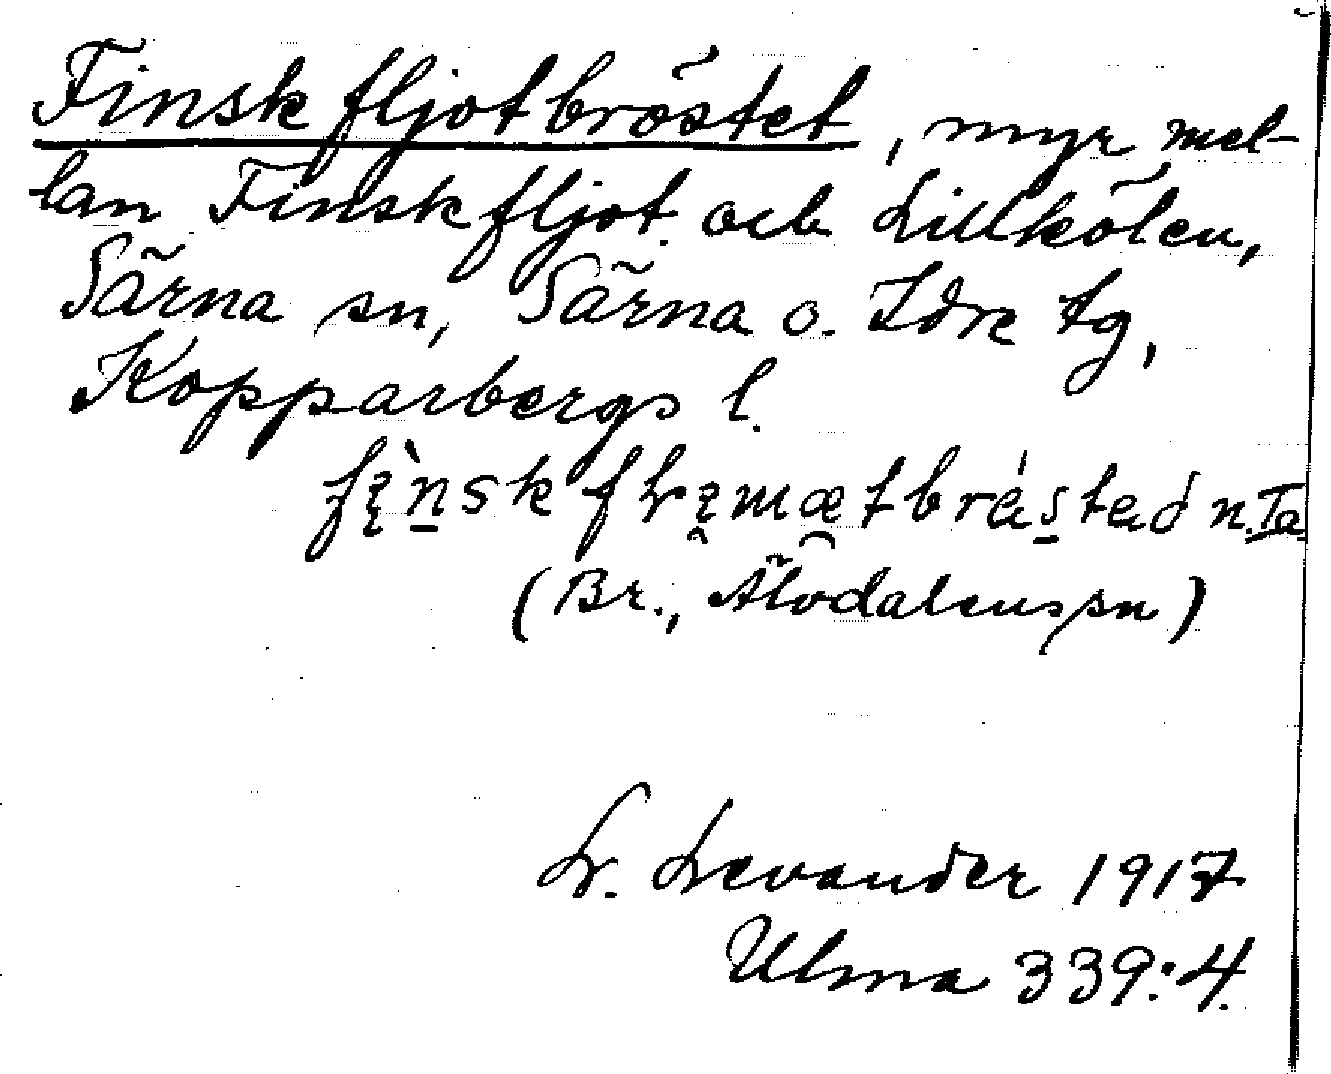 Finskfljotbröstet, myr mel-
lan Finskfljot och Lillkölen,
Särna sn, Särna o. Idre tg,
Kopparbergs l.
(Br., Älvdalens sn)
L. Levander 1917
Ulma 339:4.